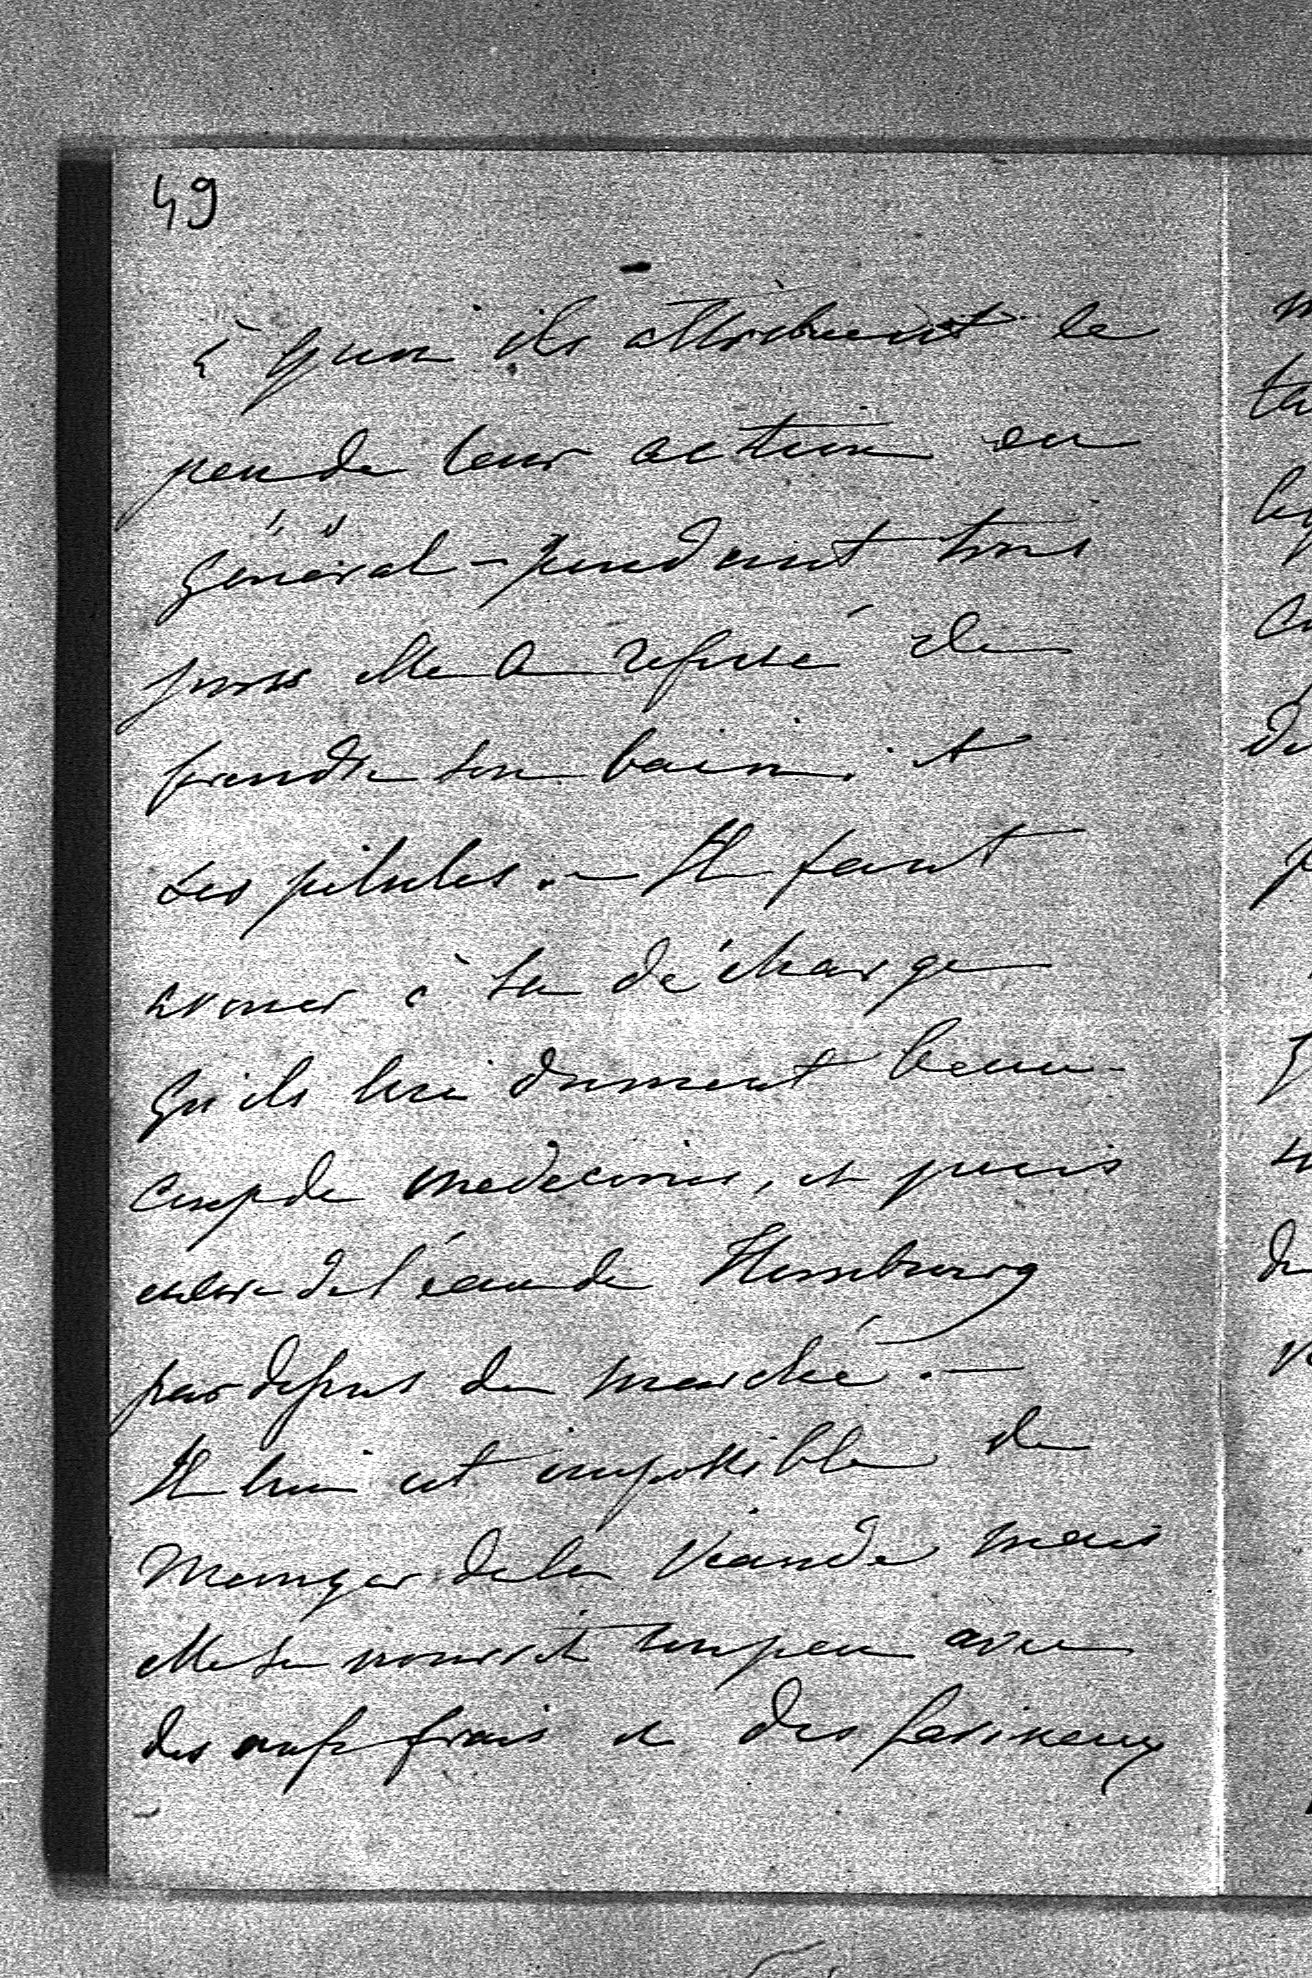 49
à quoi ils attribuent le
peu de leur action en
général – pendant trois
jours elle a refusé de
prendre son bain et
ses pilules. – Il faut
avouer à sa décharge
qu'ils lui donnent beau-
coup de medecines, et puis
encore de l'eau de Hombourg
par dessus du marché. –
Il lui est impossible de
manger de la viande mais
elle se nourrit un peu avec
des œufs frais et des farineux